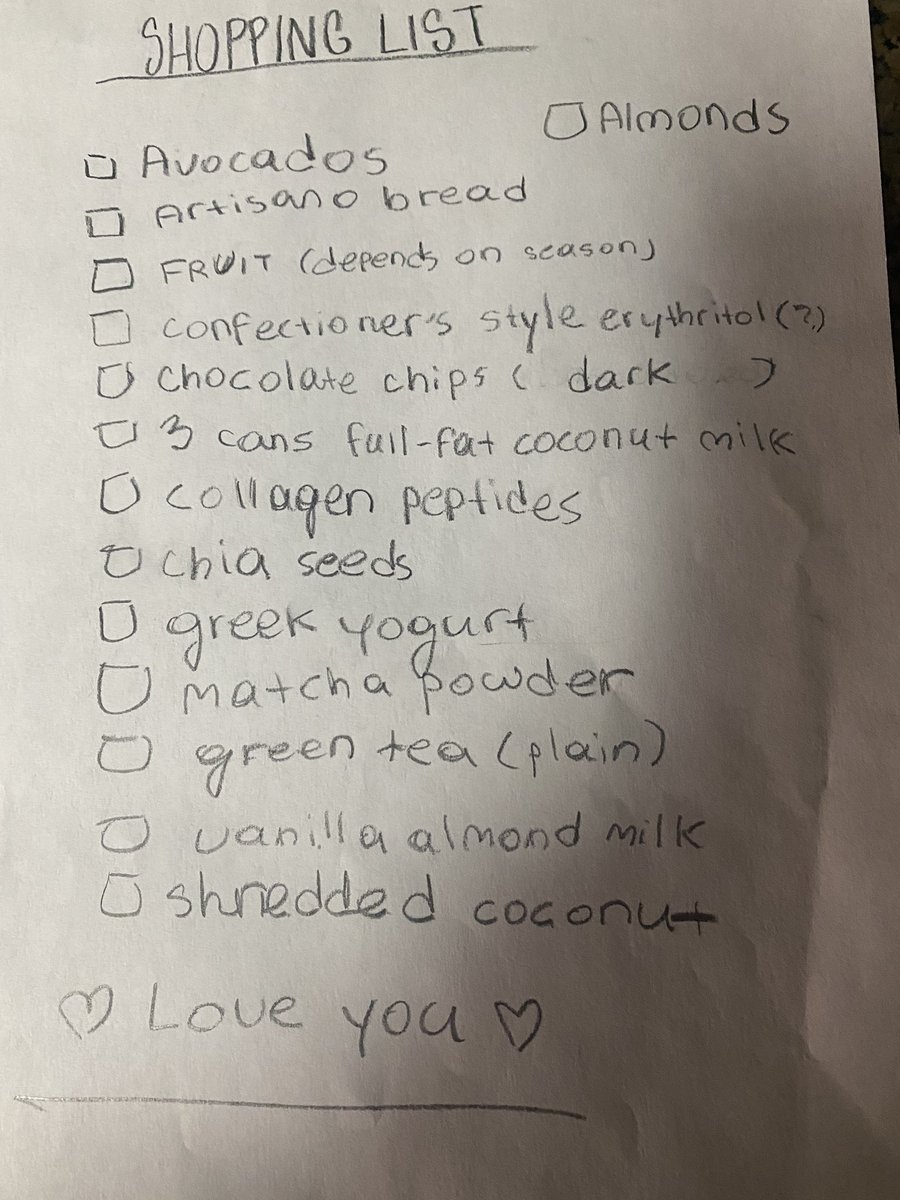 SHOPPING LIST
Almonds
Avocados
Artisano bread
FRUIT (depends on season)
confectioner's style erythritol (?)
chocolate chips ( dark )
3 cans full-fat coconut milk
collagen peptides
chia seeds
greek yogurt
matcha powder
green tea (plain)
vanilla almond milk
shredded coconut
♡ Love you ♡